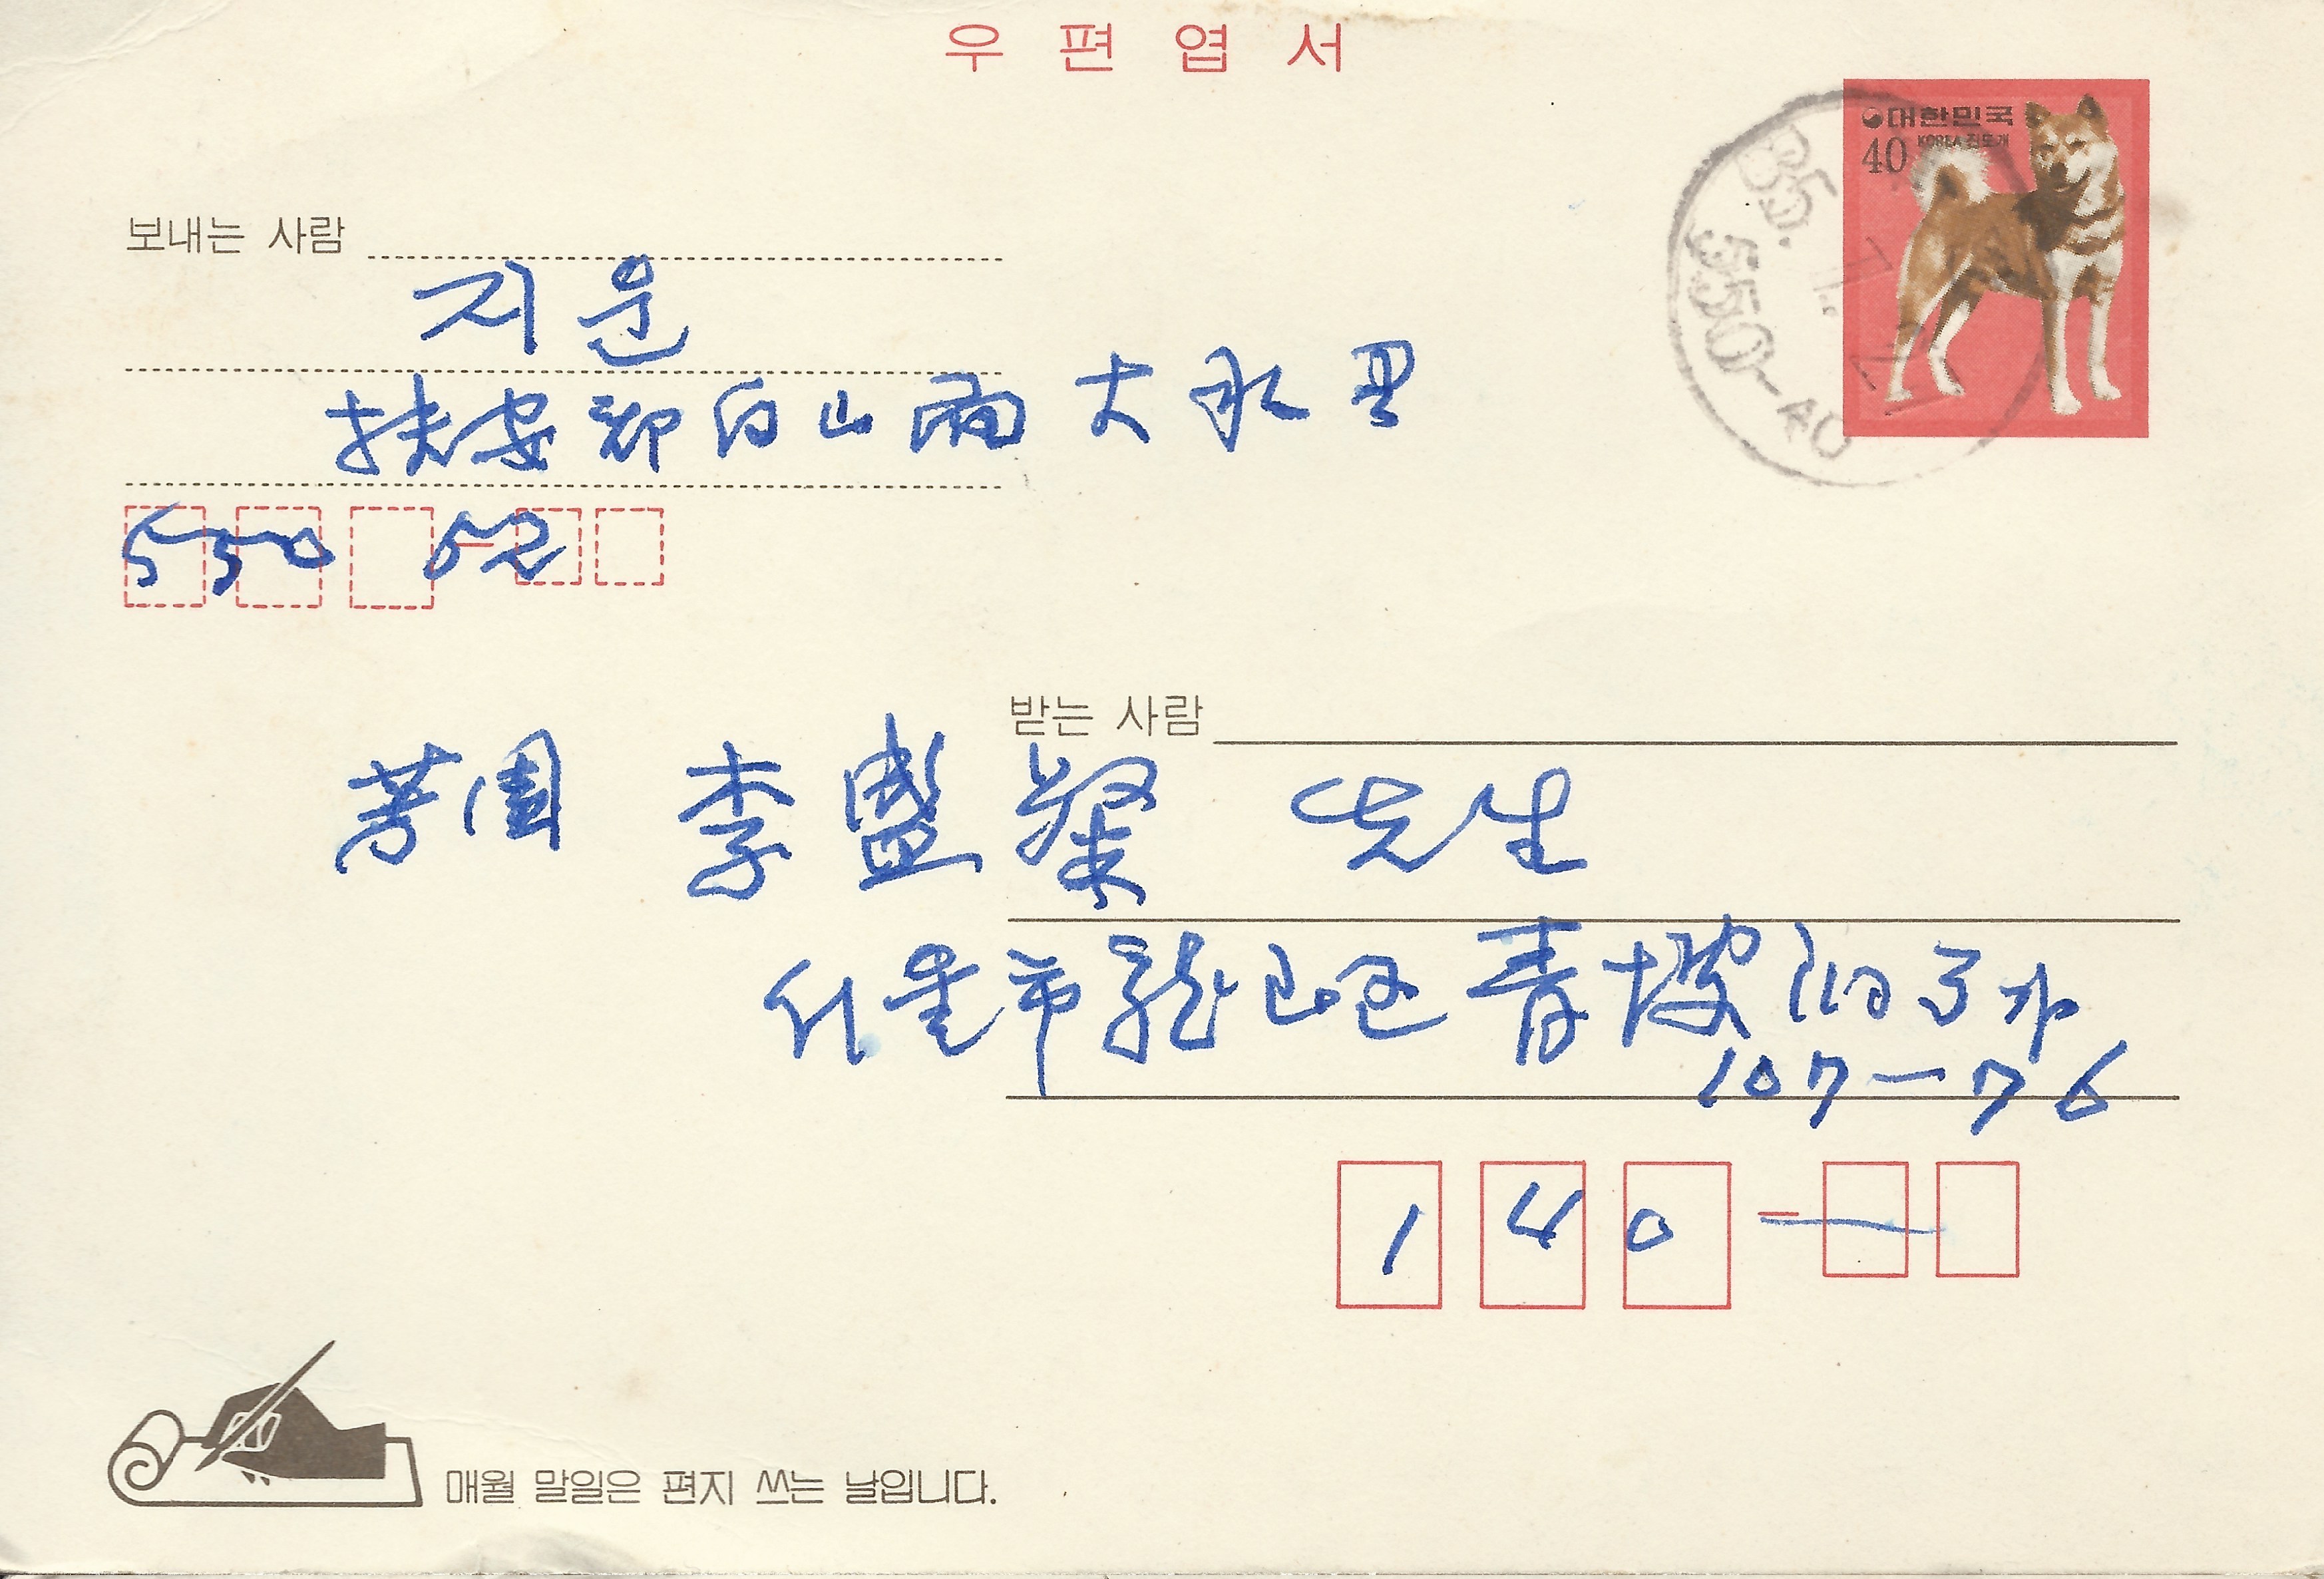 우편엽서
대한민국
40 KOREA 진도개
85.
550-40
보내는 사람
지운
扶安郡白山面大水里
550 52
받는 사람
芳園 李盛粲 先生
서울市龍山区青坡洞3가
107-76
140-
매월 말일은 편지 쓰는 날입니다.